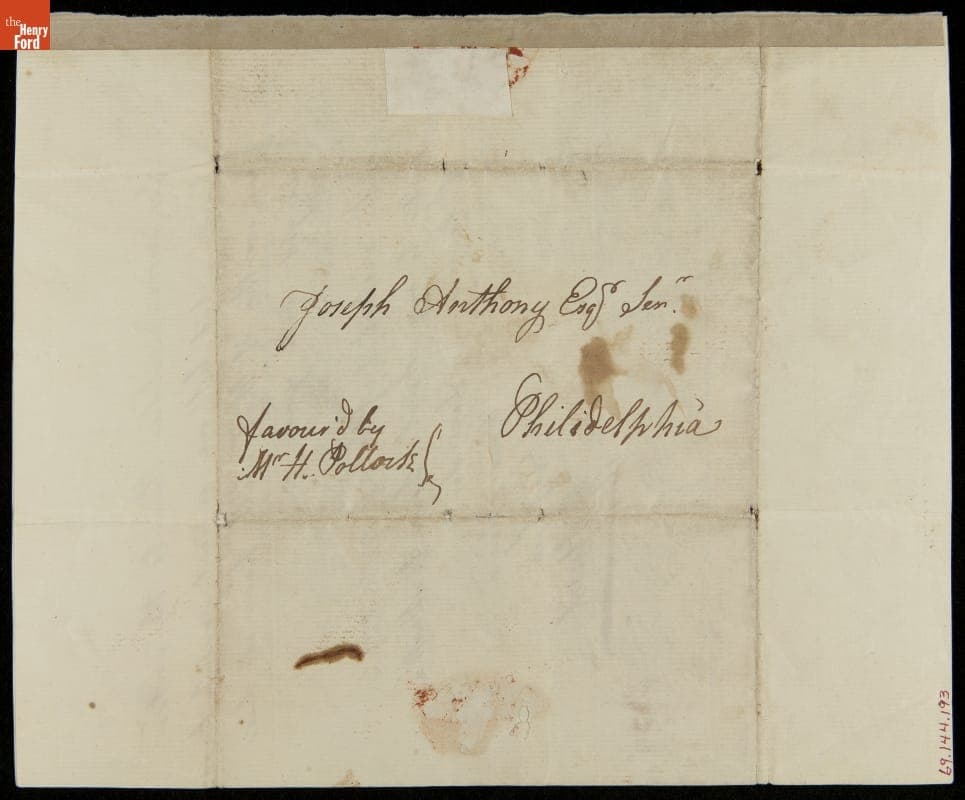 the
Henry
Ford
Joseph Anthony Esqr Senr.
Philidelphia
favour'd by
Mr H. Pollock
69.144.193